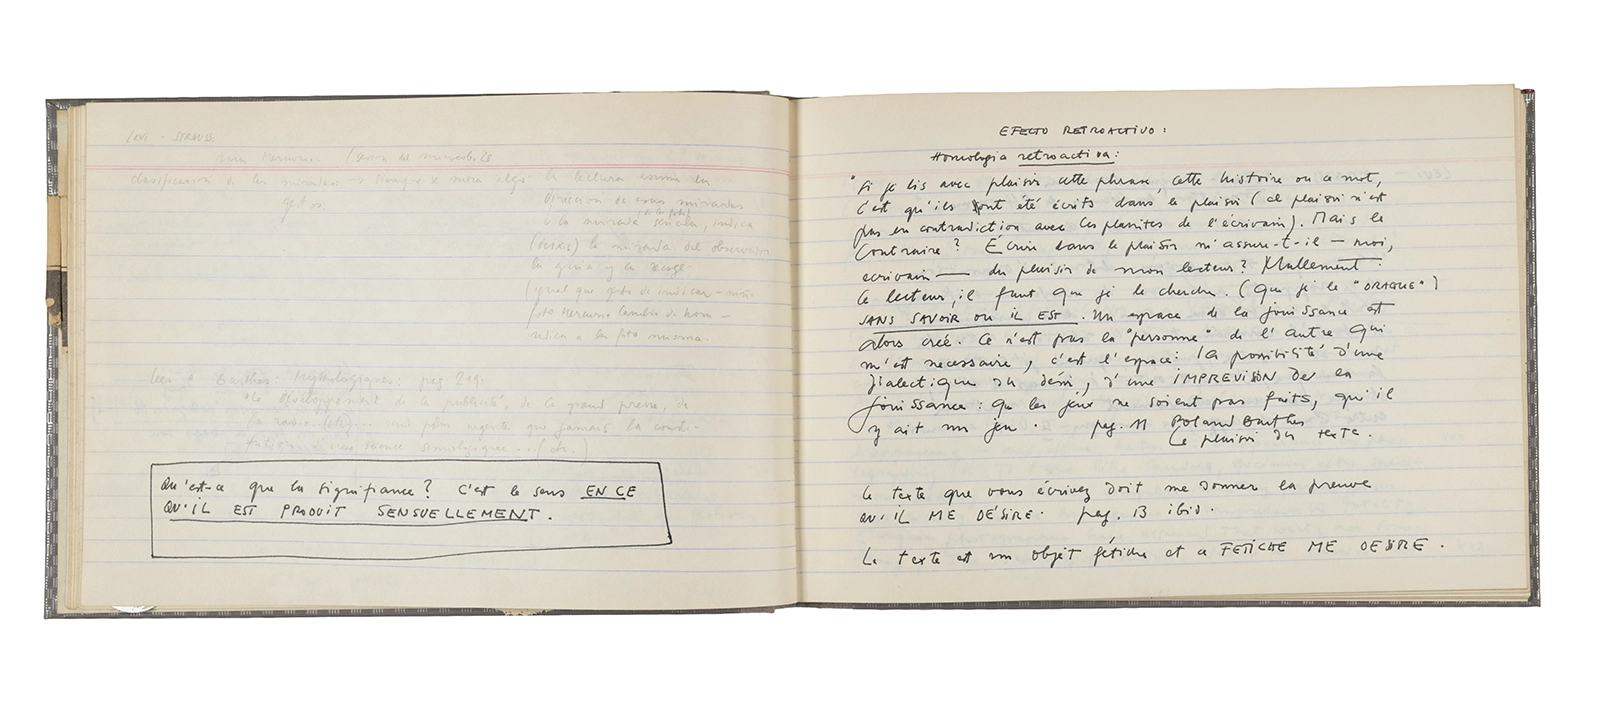 LEVI - STRAUSS.
clasificación de las miradas
gestos.
dirección de esas miradas
la mirada señala, indica
la mirada del observador
la guía y la recoge
(igual que gesto de indicar
foto Mercurio cambio de
indica a la foto misma.
Barthes: Mythologiques: pag. 219.
"Le développement de la publicité, de la grand presse, de
la radio plus urgente que jamais la consti-
tution d'une science sémiologique ... (etc.)
Qu'est-ce que la signifiance? C'est le sens EN CE
QU'IL EST PRODUIT SENSUELLEMENT.
EFECTO RETROACTIVO:
Homologia retroactiva:
"Si je lis avec plaisir cette phrase, cette histoire ou ce mot,
c'est qu'ils ont été écrits dans le plaisir (ce plaisir n'est
pas en contradiction avec les plaintes de l'écrivain). Mais le
contraire? Écrire dans le plaisir m'assure-t-il — moi,
ecrivain — du plaisir de mon lecteur? Nullement.
Ce lecteur, il faut que je le cherche. (Que je le "DRAGUE")
SANS SAVOIR OU IL EST. Un espace de la jouissance est
alors creé. Ce n'est pas la "personne" de l'autre qui
m'est necessaire, c'est l'espace: la possibilité d'une
dialectique du désir, d'une IMPREVISION de la
jouissance: que les jeux ne soient pas faits, qu'il
y ait un jeu. pag. 11 Roland Barthes
Le plaisir du texte.
Le texte que vous écrivez doit me donner la preuve
QU'IL ME DÉSIRE. pag. 13 ibid.
Le texte est un objet fétiche et ce FETICHE ME DESIRE.